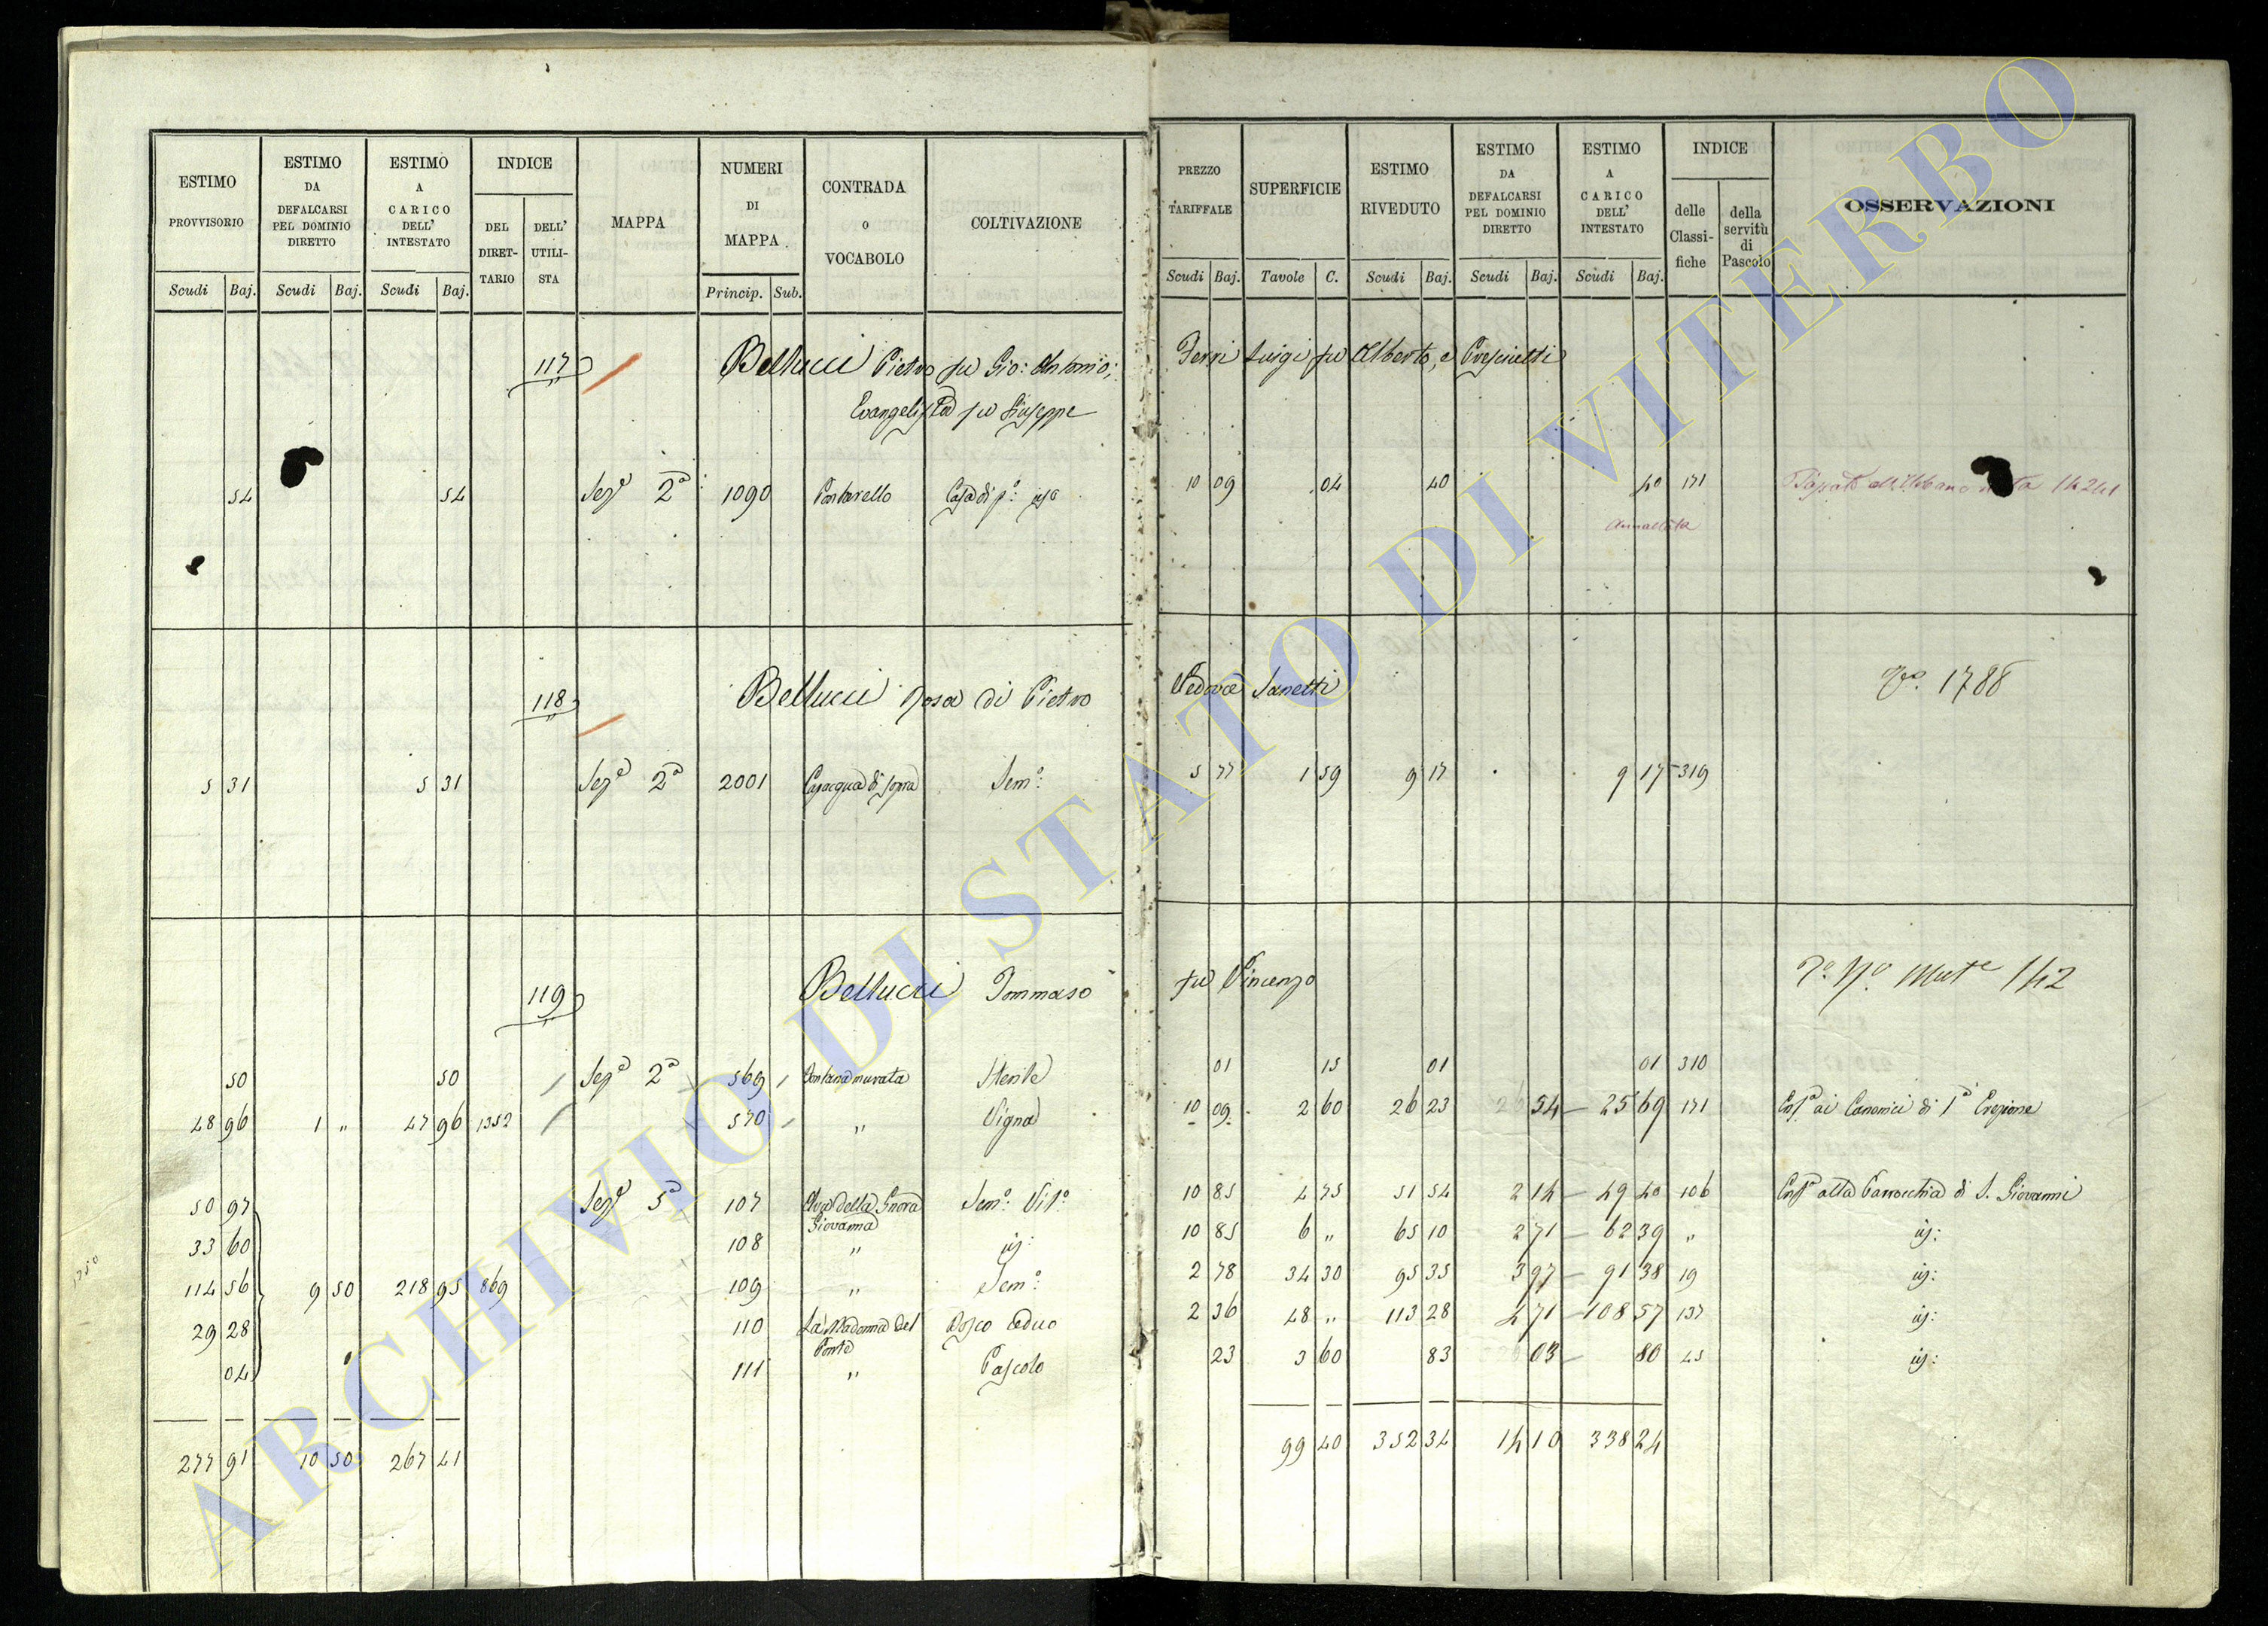 ESTIMO PROVVISORIO
ESTIMO DA DEFALCARSI PEL DOMINIO DIRETTO
ESTIMO A CARICO DELL' INTESTATO
INDICE
DEL DIRETTARIO
DELL' UTILISTA
MAPPA
NUMERI DI MAPPA
CONTRADA o VOCABOLO
COLTIVAZIONE
PREZZO TARIFFALE
SUPERFICIE
ESTIMO RIVEDUTO
ESTIMO DA DEFALCARSI PEL DOMINIO DIRETTO
ESTIMO A CARICO DELL' INTESTATO
INDICE
delle Classifiche
della servitù di Pascolo
OSSERVAZIONI
Scudi Baj. Scudi Baj. Scudi Baj. Princip. Sub. Scudi Baj. Tavole C. Scudi Baj. Scudi Baj. Scudi Baj.
117 Bellucci Pietro fu Gio: Antonio; Ferri Luigi fu Alberto, e
Evangelista fu Giuseppe
54 54 Sezᵉ 2ᵃ 1090 Casa di pº: uso 10 09 04 40 40 171
118 Bellucci Rosa di Pietro Vedova Sanetti 1788
5 31 5 31 Sezᵉ 2ᵃ 2001 Semº: 5 77 1 59 9 17 9 17 319
119 Bellucci Tommaso fu Vincenzo Nº Mutᵉ 142
50 50 Sezᵉ 2ᵃ 569 Fontana murata Sterile 01 15 01 01 310
48 96 1 " 47 96 1352 570 " Vigna 10 09 2 60 26 23 54 25 69 171 ai Canonici di 1ᵃ Erezione
50 97 Sezᵉ 5ᵃ 107 della Gnora Giovanna Semº: Vitº 10 85 4 75 51 54 2 14 49 40 106 alla Parrocchia di S. Giovanni
33 60 108 " id: 10 85 6 " 65 10 2 71 62 39 " id:
114 56 9 50 218 95 869 109 " Semº: 2 78 34 30 95 35 3 97 91 38 19 id:
29 28 110 La Madonna del Ponte Bosco ceduo 2 36 48 " 113 28 4 71 108 57 137 id:
04 111 " Pascolo 23 3 60 83 03 80 45 id:
277 91 10 50 267 41 99 40 352 34 14 10 338 24
ARCHIVIO DI STATO DI VITERBO